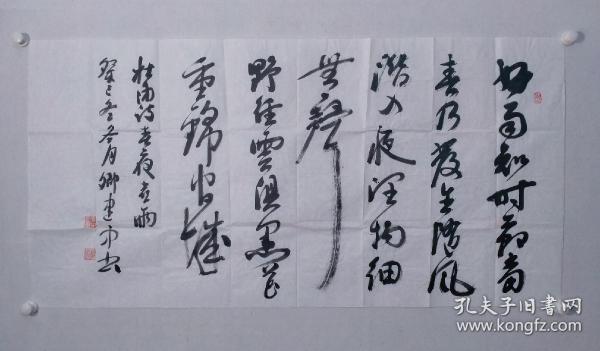 好雨知时节当
春乃發生随风
潜入夜润物细
無聲
野径雲俱黑花
重锦官城
杜甫诗春夜喜雨
癸巳冬冬月卿建书
孔夫子旧书网
www.kongfz.com